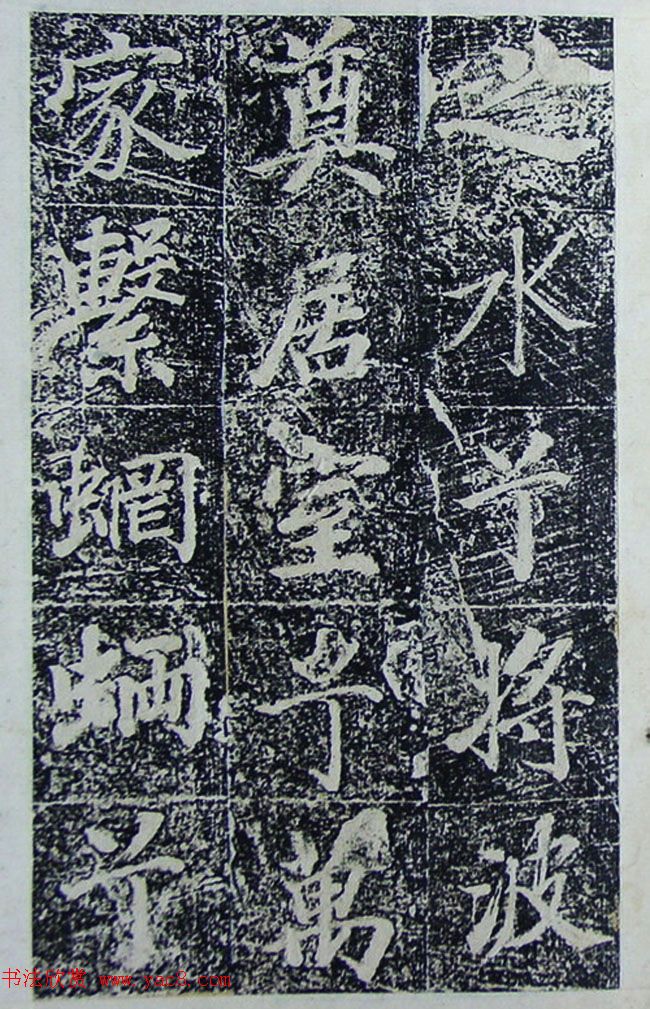 之水兮将波
奠居室兮萬
家繫蝄蜽兮
书法欣赏 www.yac8.com